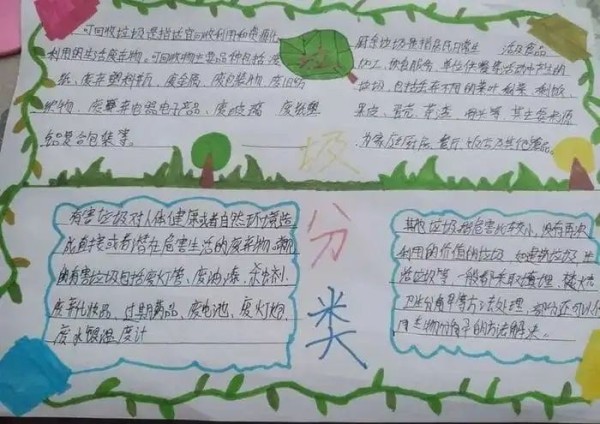 可回收垃圾是指适宜回收利用和资源化
利用的生活废弃物。可回收物主要品种包括废
纸、废弃塑料瓶、废金属、废包装物、废旧纺
织物、废弃电器电子产品、废玻璃 废纸塑
铝复合包装等。
厨余垃圾是指居民日常生 活及食品
加工、饮食服务、单位供餐等活动中产生的
垃圾,包括丢弃不用的菜叶 剩菜、剩饭、
果皮、蛋壳、茶渣、骨头等,其主要来源
为家庭厨房、餐厅
垃
圾
分
类
有害垃圾对人体健康或者自然环境造
成直接或者潜在危害生活的废弃物,常见
的有害垃圾包括废灯管、废油漆、杀虫剂、
废弃化妆品、过期药品、废电池、废灯泡、
废水银温度计
其他垃圾指危害比较小,没有再次
利用的价值的垃圾 如建筑垃圾
生活垃圾等,一般都采取填埋、焚烧、
卫生分解等方法处理,部分还可以
用生物分解的方法解决。